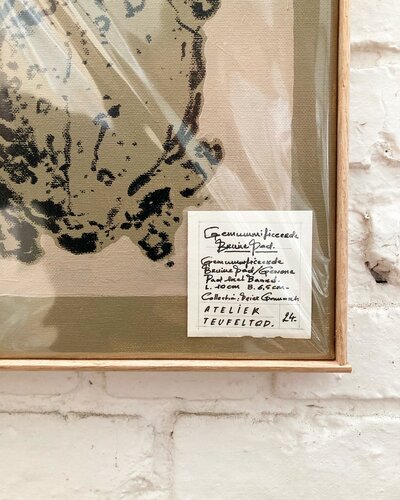 Gemummificeerde
Bruine Pad.
Gemummificeerde
Bruine Pad/Gewone
Pad met Banad.
L. 10 cm B. 6,5 cm
Collectie:
ATELIER
TEUFELTOD.
24.